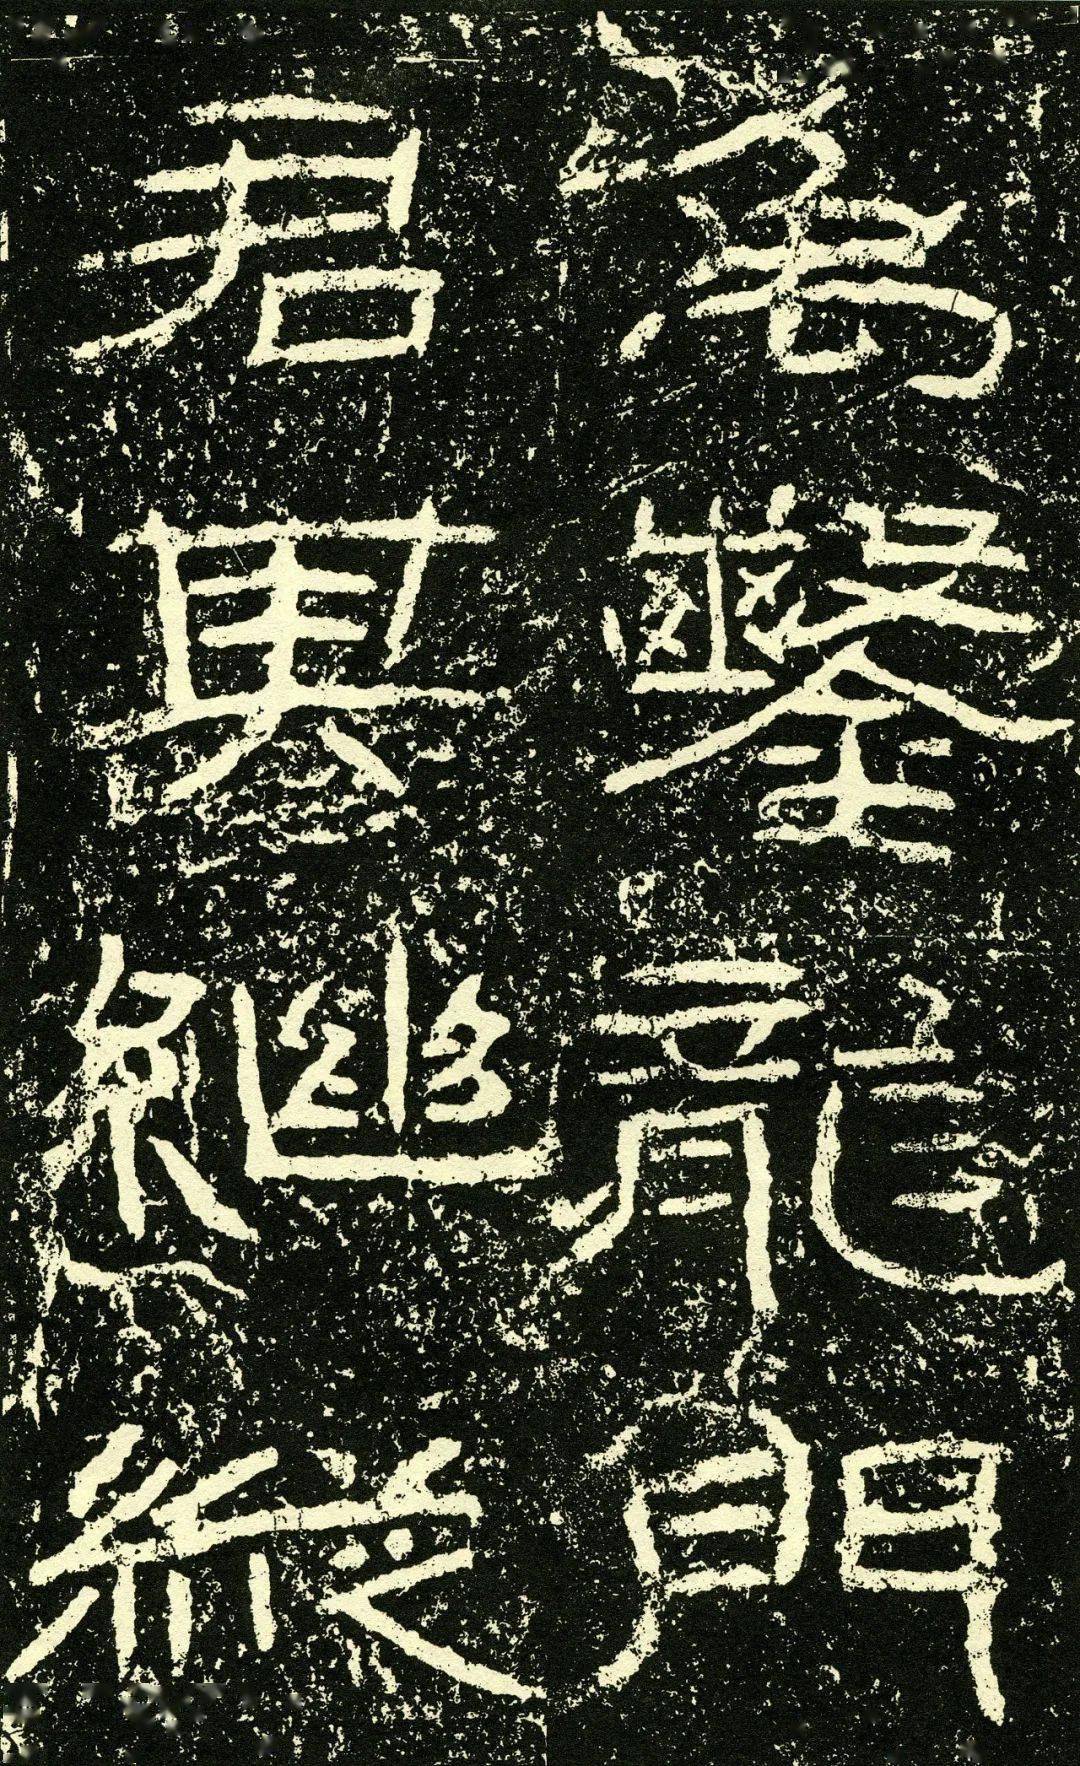 禹鑿龍門
君其繼縱